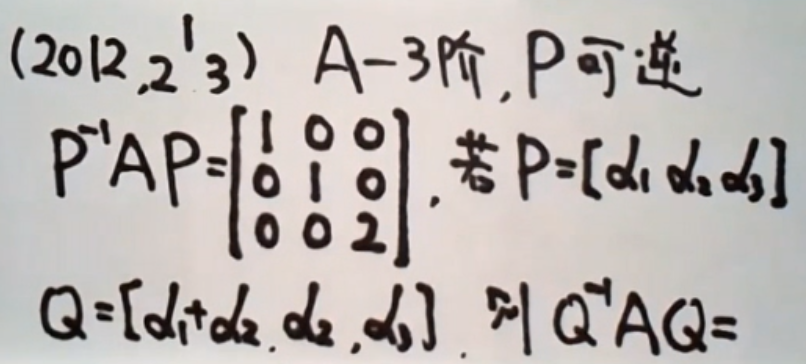 (2012,2 1 3) A-3阶,P可逆
P⁻¹AP=[1 0 0
0 1 0
0 0 2],若P=[α₁ α₂ α₃]
Q=[α₁+α₂,α₂,α₃].则Q⁻¹AQ=